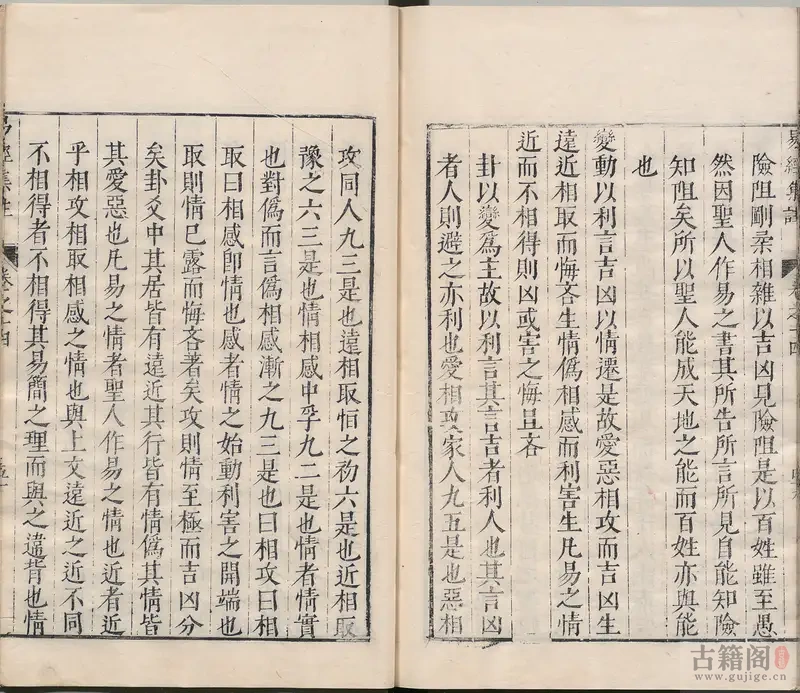 險阻剛柔相雜以吉凶見險阻是以百姓雖至愚
然因聖人作易之書其所告所言所見自能知險
知阻矣所以聖人能成天地之能而百姓亦與能
也
變動以利言吉凶以情遷是故愛惡相攻而吉凶生
遠近相取而悔吝生情僞相感而利害生凡易之情
近而不相得則凶或害之悔且吝
卦以變爲主故以利言其言吉者利人也其言凶
者人則避之亦利也愛相攻家人九五是也惡相
攻同人九三是也遠相取恒之初六是也近相取
豫之六三是也情相感中孚九二是也情者情實
也對僞而言僞相感漸之九三是也曰相攻曰相
取曰相感即情也感者情之始動利害之開端也
取則情已露而悔吝著矣攻則情至極而吉凶分
矣卦爻中其居皆有遠近其行皆有情僞其情皆
其愛惡也凡易之情者聖人作易之情也近者近
乎相攻相取相感之情也與上文遠近之近不同
不相得者不相得其易簡之理而與之違背也情
易經集註
卷之十四
古籍阁
www.gujige.cn